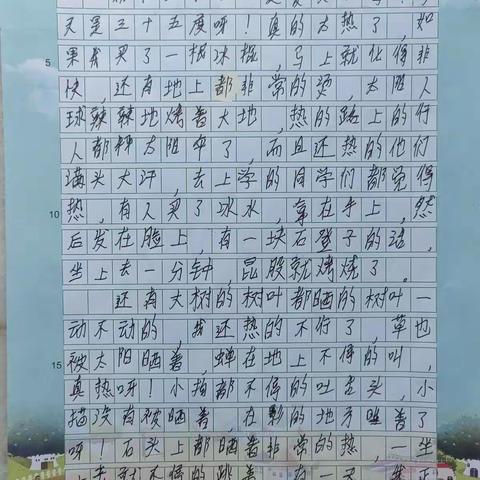 天是三十五度呀！真的太热了，如
5 果我买了一根冰棍，马上就化得非
快，还有地上都非常的烫，太阳人
球辣辣地烤着大地，热的路上的行
人都抨太阳伞了，而且还热的他们
满头大汗，去上学的同学们都觉得
10 热，有人买了冰水，拿在手上，然
后发在脸上，有一块石登子的话，
坐上去一分钟，昆股就烤烧了。
还有大树的树叶都晒的树叶一
动不动的，我还热的不行了，草也
15 被太阳晒着，蝉在地上不停的叫，
真热呀！小狗都不停的吐舌头，小
猫没有被晒着，在影的地方睡着了
呀！石头上都晒着非常的热，一坐